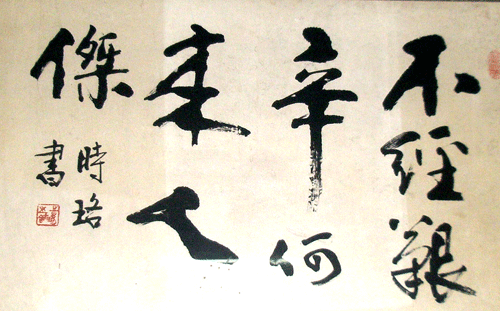 不經艱
辛何
来人
傑
時珞
書